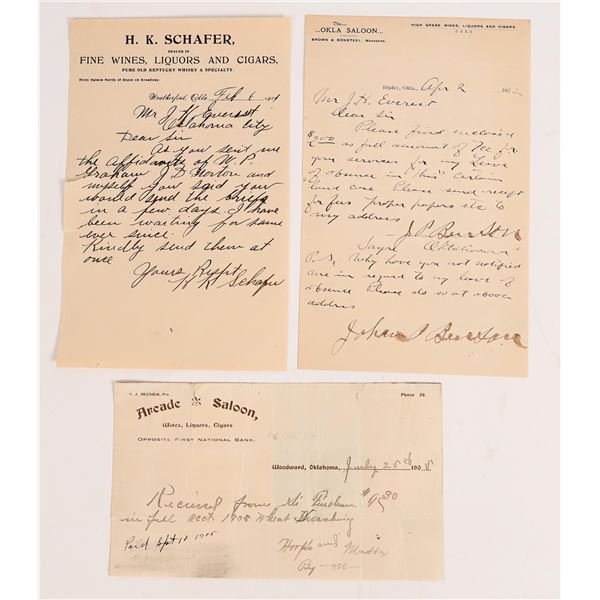 H. K. SCHAFER,
DEALER IN
FINE WINES, LIQUORS AND CIGARS,
PURE OLD KENTUCKY WHISKY A SPECIALTY.
First Saloon North of Depot on Broadway.
Weatherford, Okla. Feb 6
Mr J H Everest
Oklahoma City
Dear Sir
As you sent me
the affidavits of W. P.
Graham J D Norton and
myself you said you
would send the
in a few days I have
been waiting for same
ever since.
Kindly send them at
once
Yours Respt
H K Schafer
The...
...OKLA SALOON...
BROWN & BONSTEEL, MANAGERS.
HIGH GRADE WINES, LIQUORS AND CIGARS.
Okla., Apr 2 190
Mr J. H. Everest
Dear Sir
Please find enclosed
as full amount of fee for
your services for my leave
of absence in this certain
land case Please send receipt
for fees proper papers etc to
my address
Sayre Oklahoma
P.S. Why have you not notified
me in regard to my leave of
absence Please do so at above
address
Arcade Saloon,
Wines, Liquors, Cigars
OPPOSITE FIRST NATIONAL BANK.
Phone 20.
Woodward, Oklahoma, July 25th 1905
Recieved from
in full acct 1905 Wheat Thrashing
Paid Sept 12 1905
and Maddx
By M